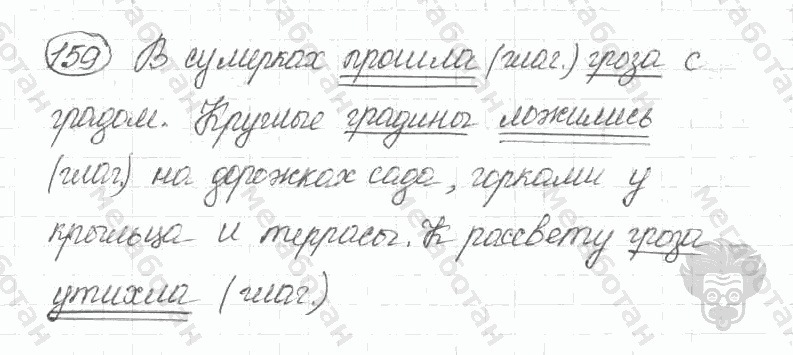 159 В сумерках прошла (глаг.) гроза с
градом. Круглые градины ложились
(глаг.) на дорожках сада, горками у
крыльца и террасы. К рассвету гроза
утихла (глаг.)
мегаботан